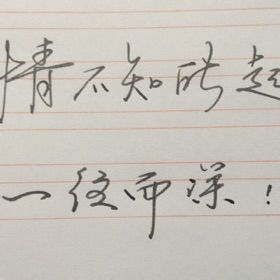 情不知所起
一往而深！